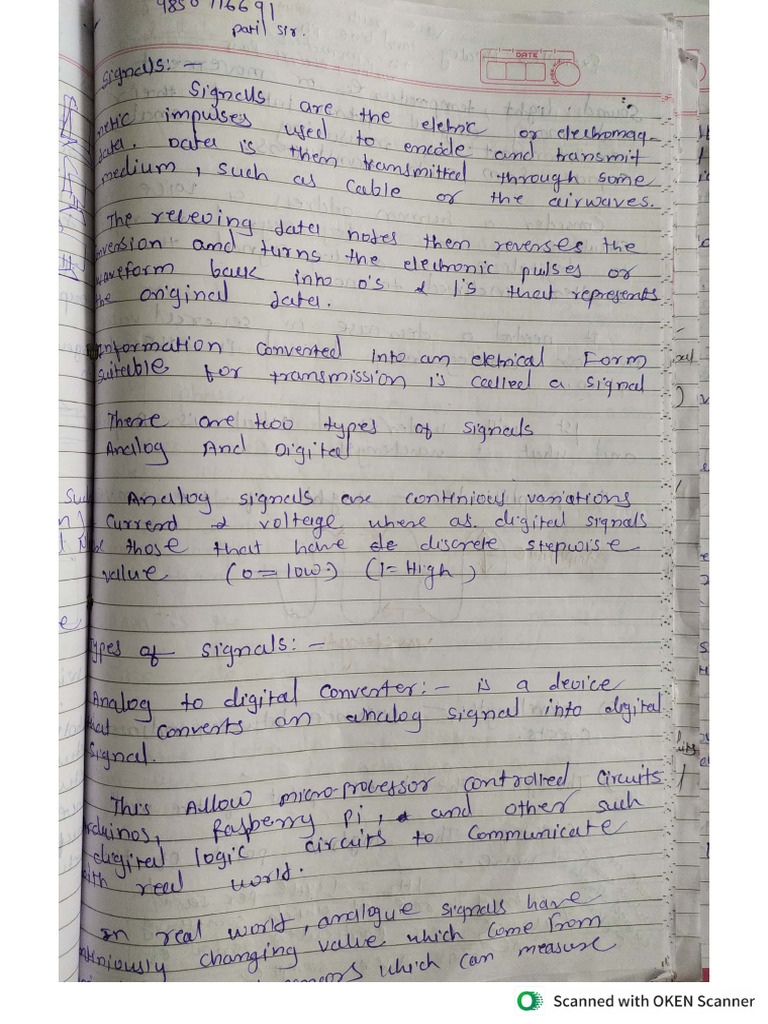 9850116691
patil sir.
DATE
Signals:-
Signals are the eletric or electromag-
netic impulses used to encode and transmit
data. Data is them transmitted through some
medium, such as cable or the airwaves.
The receving data notes them reverses the
inversion and turns the electronic pulses or
waveform back into 0's & 1's that represents
the original data.
Information converted into an eletrical Form
suitable for transmission is called a signal
There are two types of signals
Analog And Digital
Analog signals are continious variations
Current & voltage where as digital signals
those that have de discrete stepwise
value (0=low.) (1=High)
Types of signals:-
Analog to digital converter:- is a device
that converts an analog signal into digital
Signal.
This Allow micro-processor controlled circuits
Arduinos, Raspberry pi, and other such
digital logic circuits to communicate
with real world.
In real world, analogue signals have
continiously changing value which come from
which can measure
Scanned with OKEN Scanner